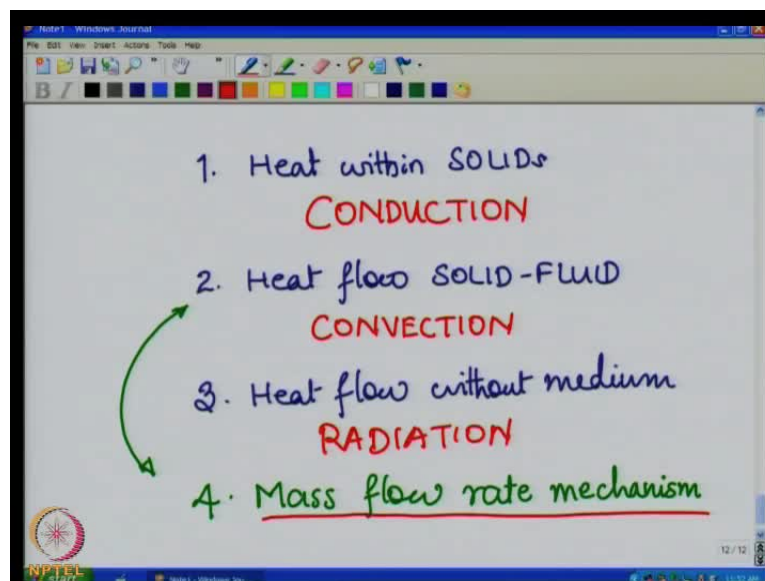 Note1 - Windows Journal
File Edit View Insert Actions Tools Help
B I
1. Heat within SOLIDs
CONDUCTION
2. Heat flow SOLID-FLUID
CONVECTION
3. Heat flow without medium
RADIATION
4. Mass flow rate mechanism
12 / 12
NPTEL
start
Note1 - Windows Jou...